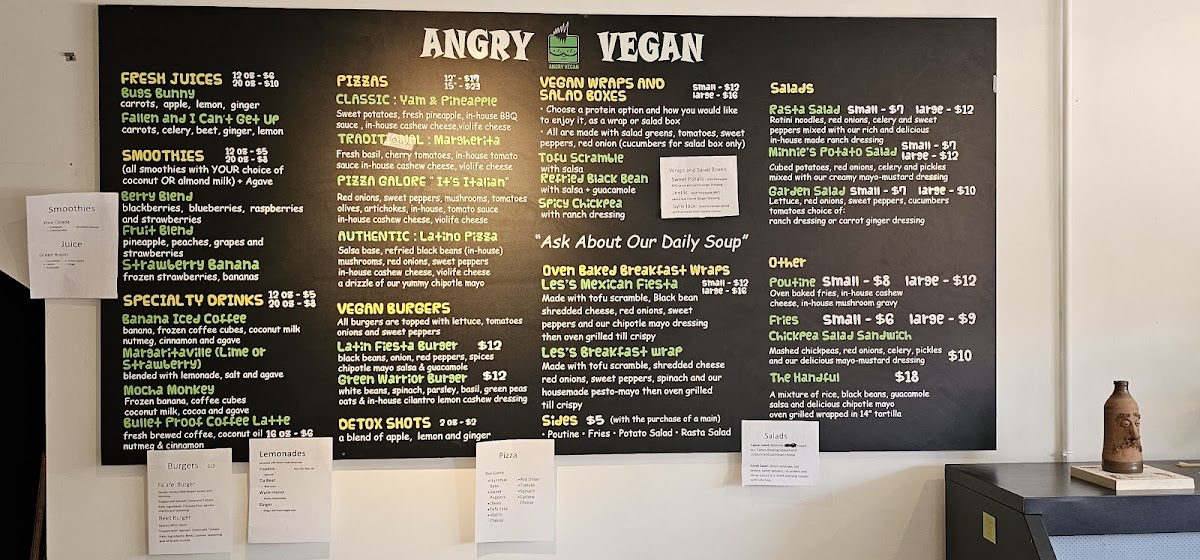 ANGRY VEGAN
ANGRY VEGAN
FRESH JUICES 12 oz - $6
20 oz - $10
Bugs Bunny
carrots, apple, lemon, ginger
Fallen and I Can't Get Up
carrots, celery, beet, ginger, lemon
SMOOTHIES 12 oz - $5
20 oz - $8
(all smoothies with YOUR choice of
coconut OR almond milk) + Agave
Berry Blend
blackberries, blueberries, raspberries
and strawberries
Fruit Blend
pineapple, peaches, grapes and
strawberries
Strawberry Banana
frozen strawberries, bananas
SPECIALTY DRINKS 12 oz - $5
20 oz - $8
Banana Iced Coffee
banana, frozen coffee cubes, coconut milk
nutmeg, cinnamon and agave
Margaritaville (Lime or
Strawberry)
blended with lemonade, salt and agave
Mocha Monkey
Frozen banana, coffee cubes
coconut milk, cocoa and agave
Bullet Proof Coffee Latte
fresh brewed coffee, coconut oil 16 oz - $6
nutmeg & cinnamon
PIZZAS
15" - $23
CLASSIC : Yam & Pineapple
Sweet potatoes, fresh pineapple, in-house BBQ
sauce , in-house cashew cheese,violife cheese
Margherita
Fresh basil, cherry tomatoes, in-house tomato
sauce in-house cashew cheese, violife cheese
PIZZA GALORE " It's Italian"
Red onions, sweet peppers, mushrooms, tomatoes
olives, artichokes, in-house, tomato sauce
in-house cashew cheese, violife cheese
AUTHENTIC : Latino Pizza
Salsa base, refried black beans (in-house)
mushrooms, red onions, sweet peppers
in-house cashew cheese, violife cheese
a drizzle of our yummy chipotle mayo
VEGAN BURGERS
All burgers are topped with lettuce, tomatoes
onions and sweet peppers
Latin Fiesta Burger $12
black beans, onion, red peppers, spices
chipotle mayo salsa & guacamole
Green Warrior Burger $12
white beans, spinach, parsley, basil, green peas
oats & in-house cilantro lemon cashew dressing
DETOX SHOTS 2 oz - $2
a blend of apple, lemon and ginger
VEGAN WRAPS AND
SALAD BOXES
small - $12
large - $16
• Choose a protein option and how you would like
to enjoy it, as a wrap or salad box
• All are made with salad greens, tomatoes, sweet
peppers, red onion (cucumbers for salad box only)
Tofu Scramble
with salsa
Refried Black Bean
with salsa + guacamole
Spicy Chickpea
with ranch dressing
"Ask About Our Daily Soup"
Oven Baked Breakfast Wraps
Les's Mexican Fiesta small - $12
large - $16
Made with tofu scramble, Black bean
shredded cheese, red onions, sweet
peppers and our chipotle mayo dressing
then oven grilled till crispy
Les's Breakfast wrap
Made with tofu scramble, shredded cheese
red onions, sweet peppers, spinach and our
housemade pesto-mayo then oven grilled
till crispy
Sides $5 (with the purchase of a main)
• Poutine • Fries • Potato Salad • Rasta Salad
Salads
Rasta Salad small - $7 large - $12
Rotini noodles, red onions, celery and sweet
peppers mixed with our rich and delicious
in-house made ranch dressing
Minnie's Potato Salad small - $7
large - $12
Cubed potatoes, red onions, celery and pickles
mixed with our creamy mayo-mustard dressing
Garden Salad small - $7 large - $10
Lettuce, red onions, sweet peppers, cucumbers
tomatoes choice of:
ranch dressing or carrot ginger dressing
Other
Poutine small - $8 large - $12
Oven baked fries, in-house cashew
cheese, in-house mushroom gravy
Fries small - $6 large - $9
Chickpea Salad Sandwich
Mashed chickpeas, red onions, celery, pickles
and our delicious mayo-mustard dressing $10
The Handful $18
A mixture of rice, black beans, guacamole
salsa and delicious chipotle mayo
oven grilled wrapped in 14" tortilla
Smoothies
Juice
Green Room
Wraps and Salad Boxes
Burgers
Falafel Burger
Beet Burger
Lemonades
Watermelon
Ginger
Pizza
Salads